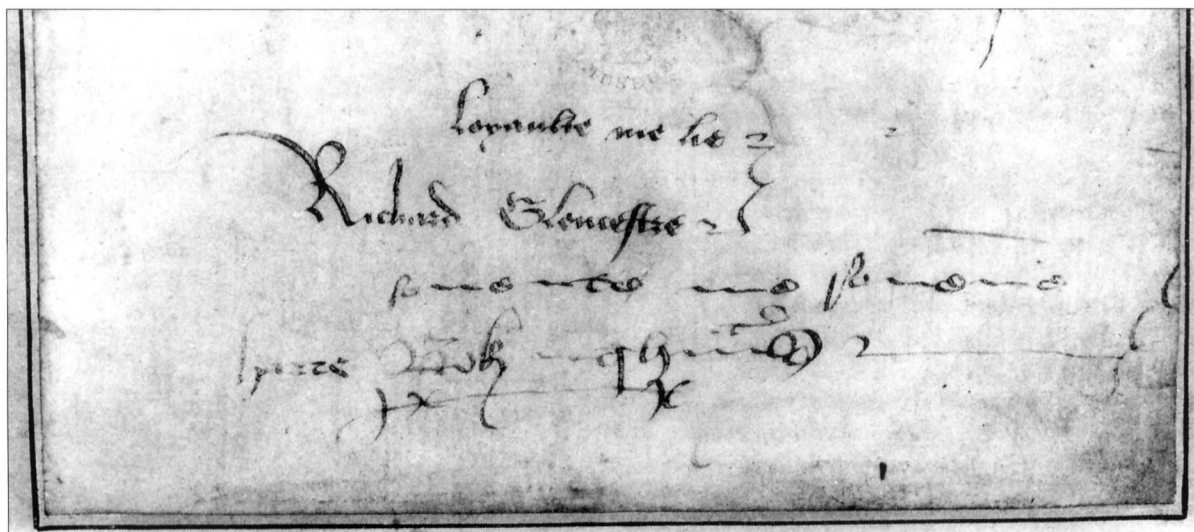 loyaulte me lie
Richard Gloucestre
souente me souene
harre Bokingham